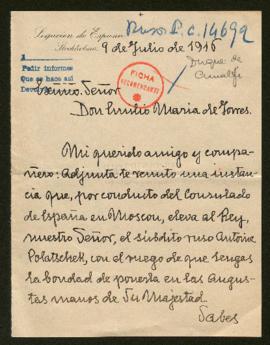 Legación de España
Stockholmo
Ruso P. c. 14692
9 de Julio de 1916
Duque de
Amalfi
Pedir informes
Que se haga así
FICHA
Excmo. Señor
Don Emilio Maria de Torres.
Mi querido amigo y compa-
ñero: Adjunta te remito una instan-
cia que, por conducto del Consulado
de España en Moscou, eleva al Rey,
nuestro Señor, el súbdito ruso Antoine
Polatschek, con el ruego de que tengas
la bondad de ponerla en las Augus-
tas manos de Su Majestad.
Sabes